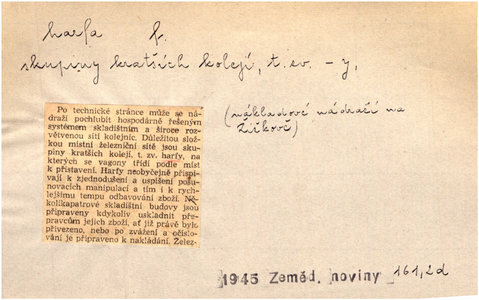 harfa f.
skupiny kratších kolejí, t. zv. -y,
(nákladové nádraží na
Žižkově)
Po technické stránce může se ná-
draží pochlubit hospodárně řešeným
systémem skladištním a široce roz-
větvenou sítí kolejnic. Důležitou slož-
kou místní železniční sítě jsou sku-
piny kratších kolejí, t. zv. harfy, na
kterých se vagony třídí podle míst
k přistavení. Harfy neobyčejně přispí-
vají k zjednodušení a uspíšení posu-
novacích manipulací a tím i k rych-
lejšímu tempu odbavování zboží. Ně-
kolikapatrové skladištní budovy jsou
připraveny kdykoliv uskladnit pře-
pravcům jejich zboží, ať již právě bylo
přivezeno, nebo po zvážení a očíslo-
vání je připraveno k nakládání. Želez-
1945 Zeměd. noviny 161,2d